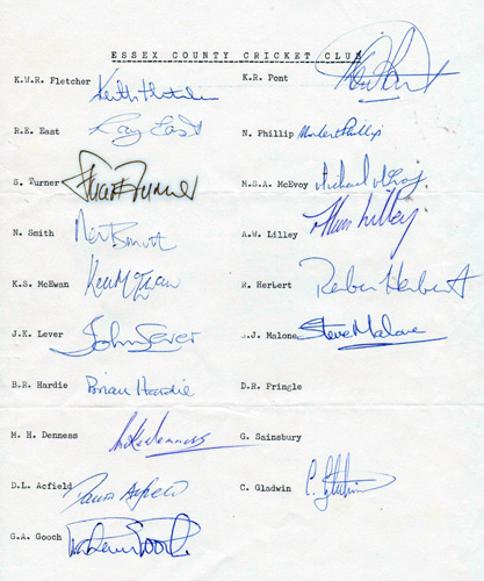 ESSEX COUNTY CRICKET CLUB
K.W.R. Fletcher Keith Fletcher K.R. Pont
R.E. East Ray East N. Phillip Norbert Phillip
S. Turner Stuart Turner M.S.A. McEvoy Michael McEvoy
N. Smith Neil Smith A.W. Lilley Alan Lilley
K.S. McEwan Ken McEwan R. Herbert Reuben Herbert
J.K. Lever John Lever S.J. Malone Steve Malone
B.R. Hardie Brian Hardie D.R. Pringle
M. H. Denness Mike Denness G. Sainsbury
D.L. Acfield David Acfield C. Gladwin
G.A. Gooch Graham Gooch